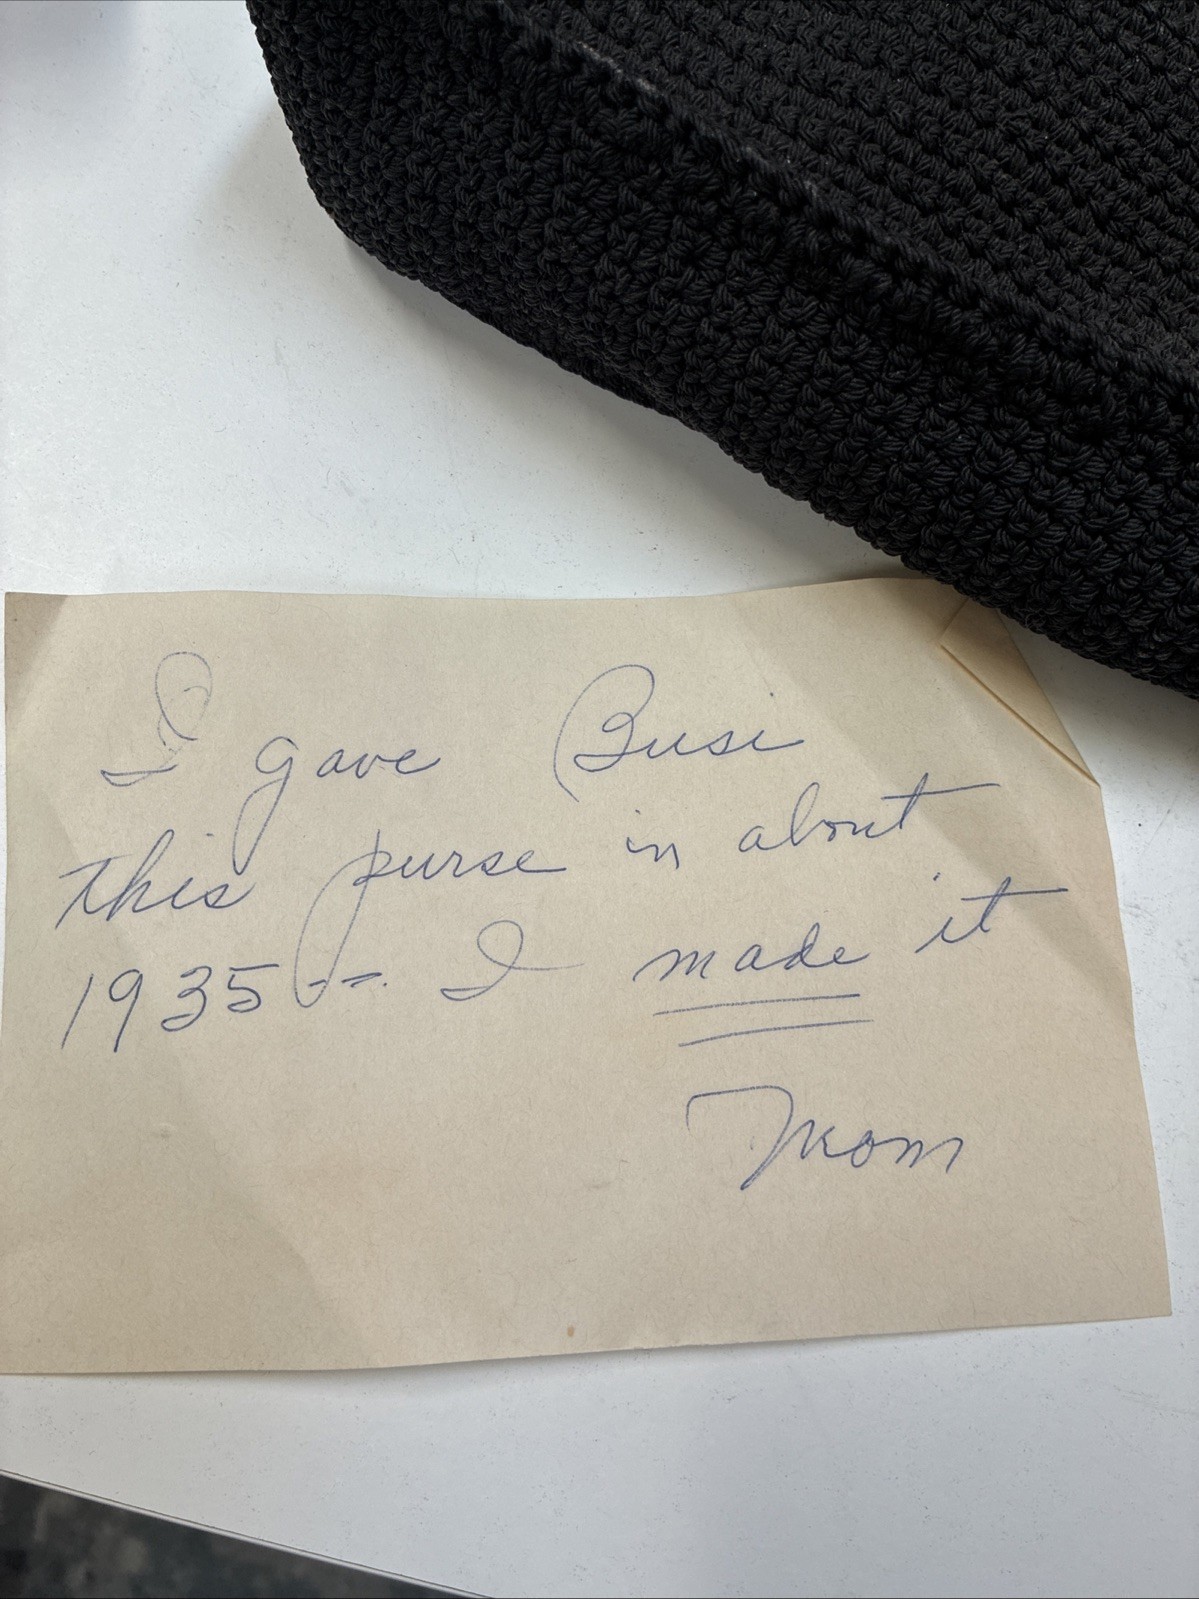 I gave Busi
this purse in about
1935 -- I made it
Mom